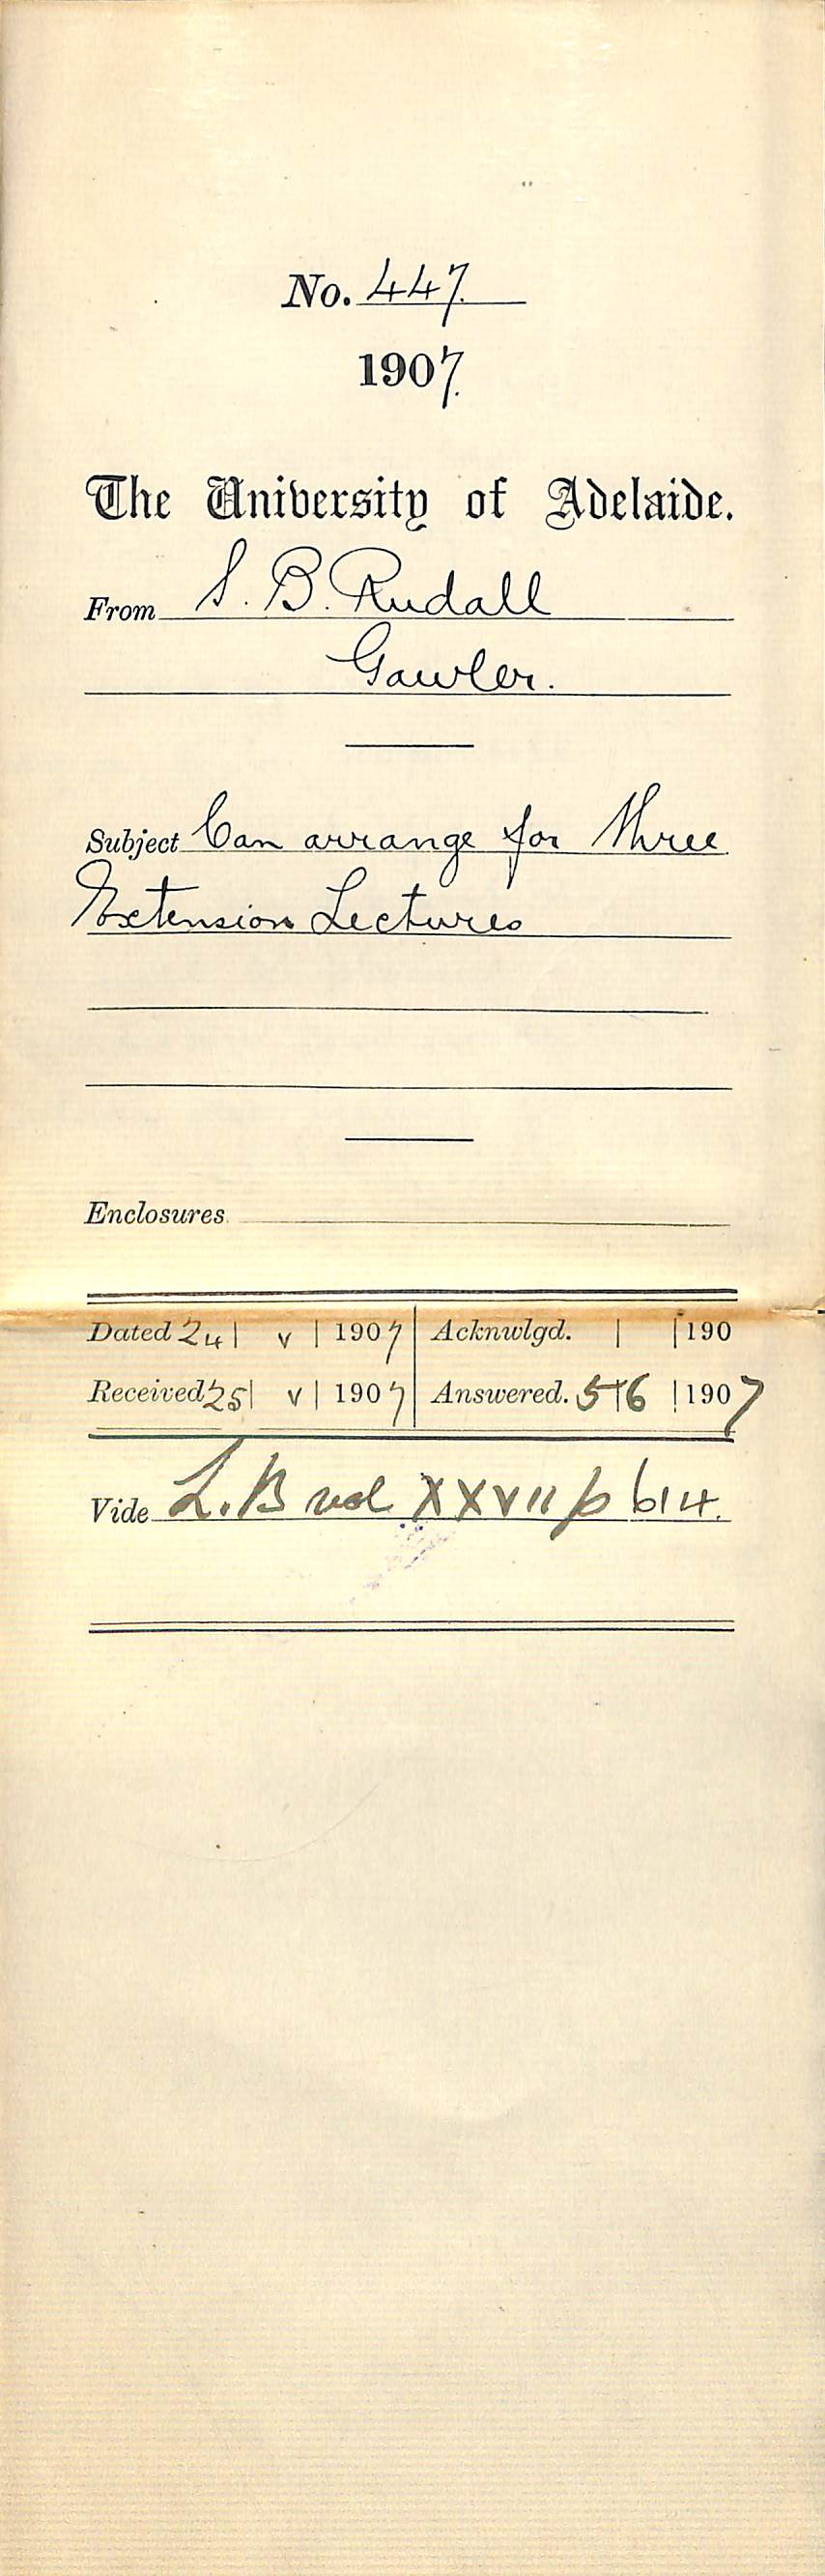 No. 447.
1907.
The University of Adelaide.
From S. B. Rudall
Gawler.
Subject Can arrange for three
Extension Lectures
Enclosures
Dated 24 | v | 1907 | Acknwlgd. | | 190
Received 25 | v | 1907 | Answered. 5 | 6 | 1907
Vide L.B vol XXVII p 614.